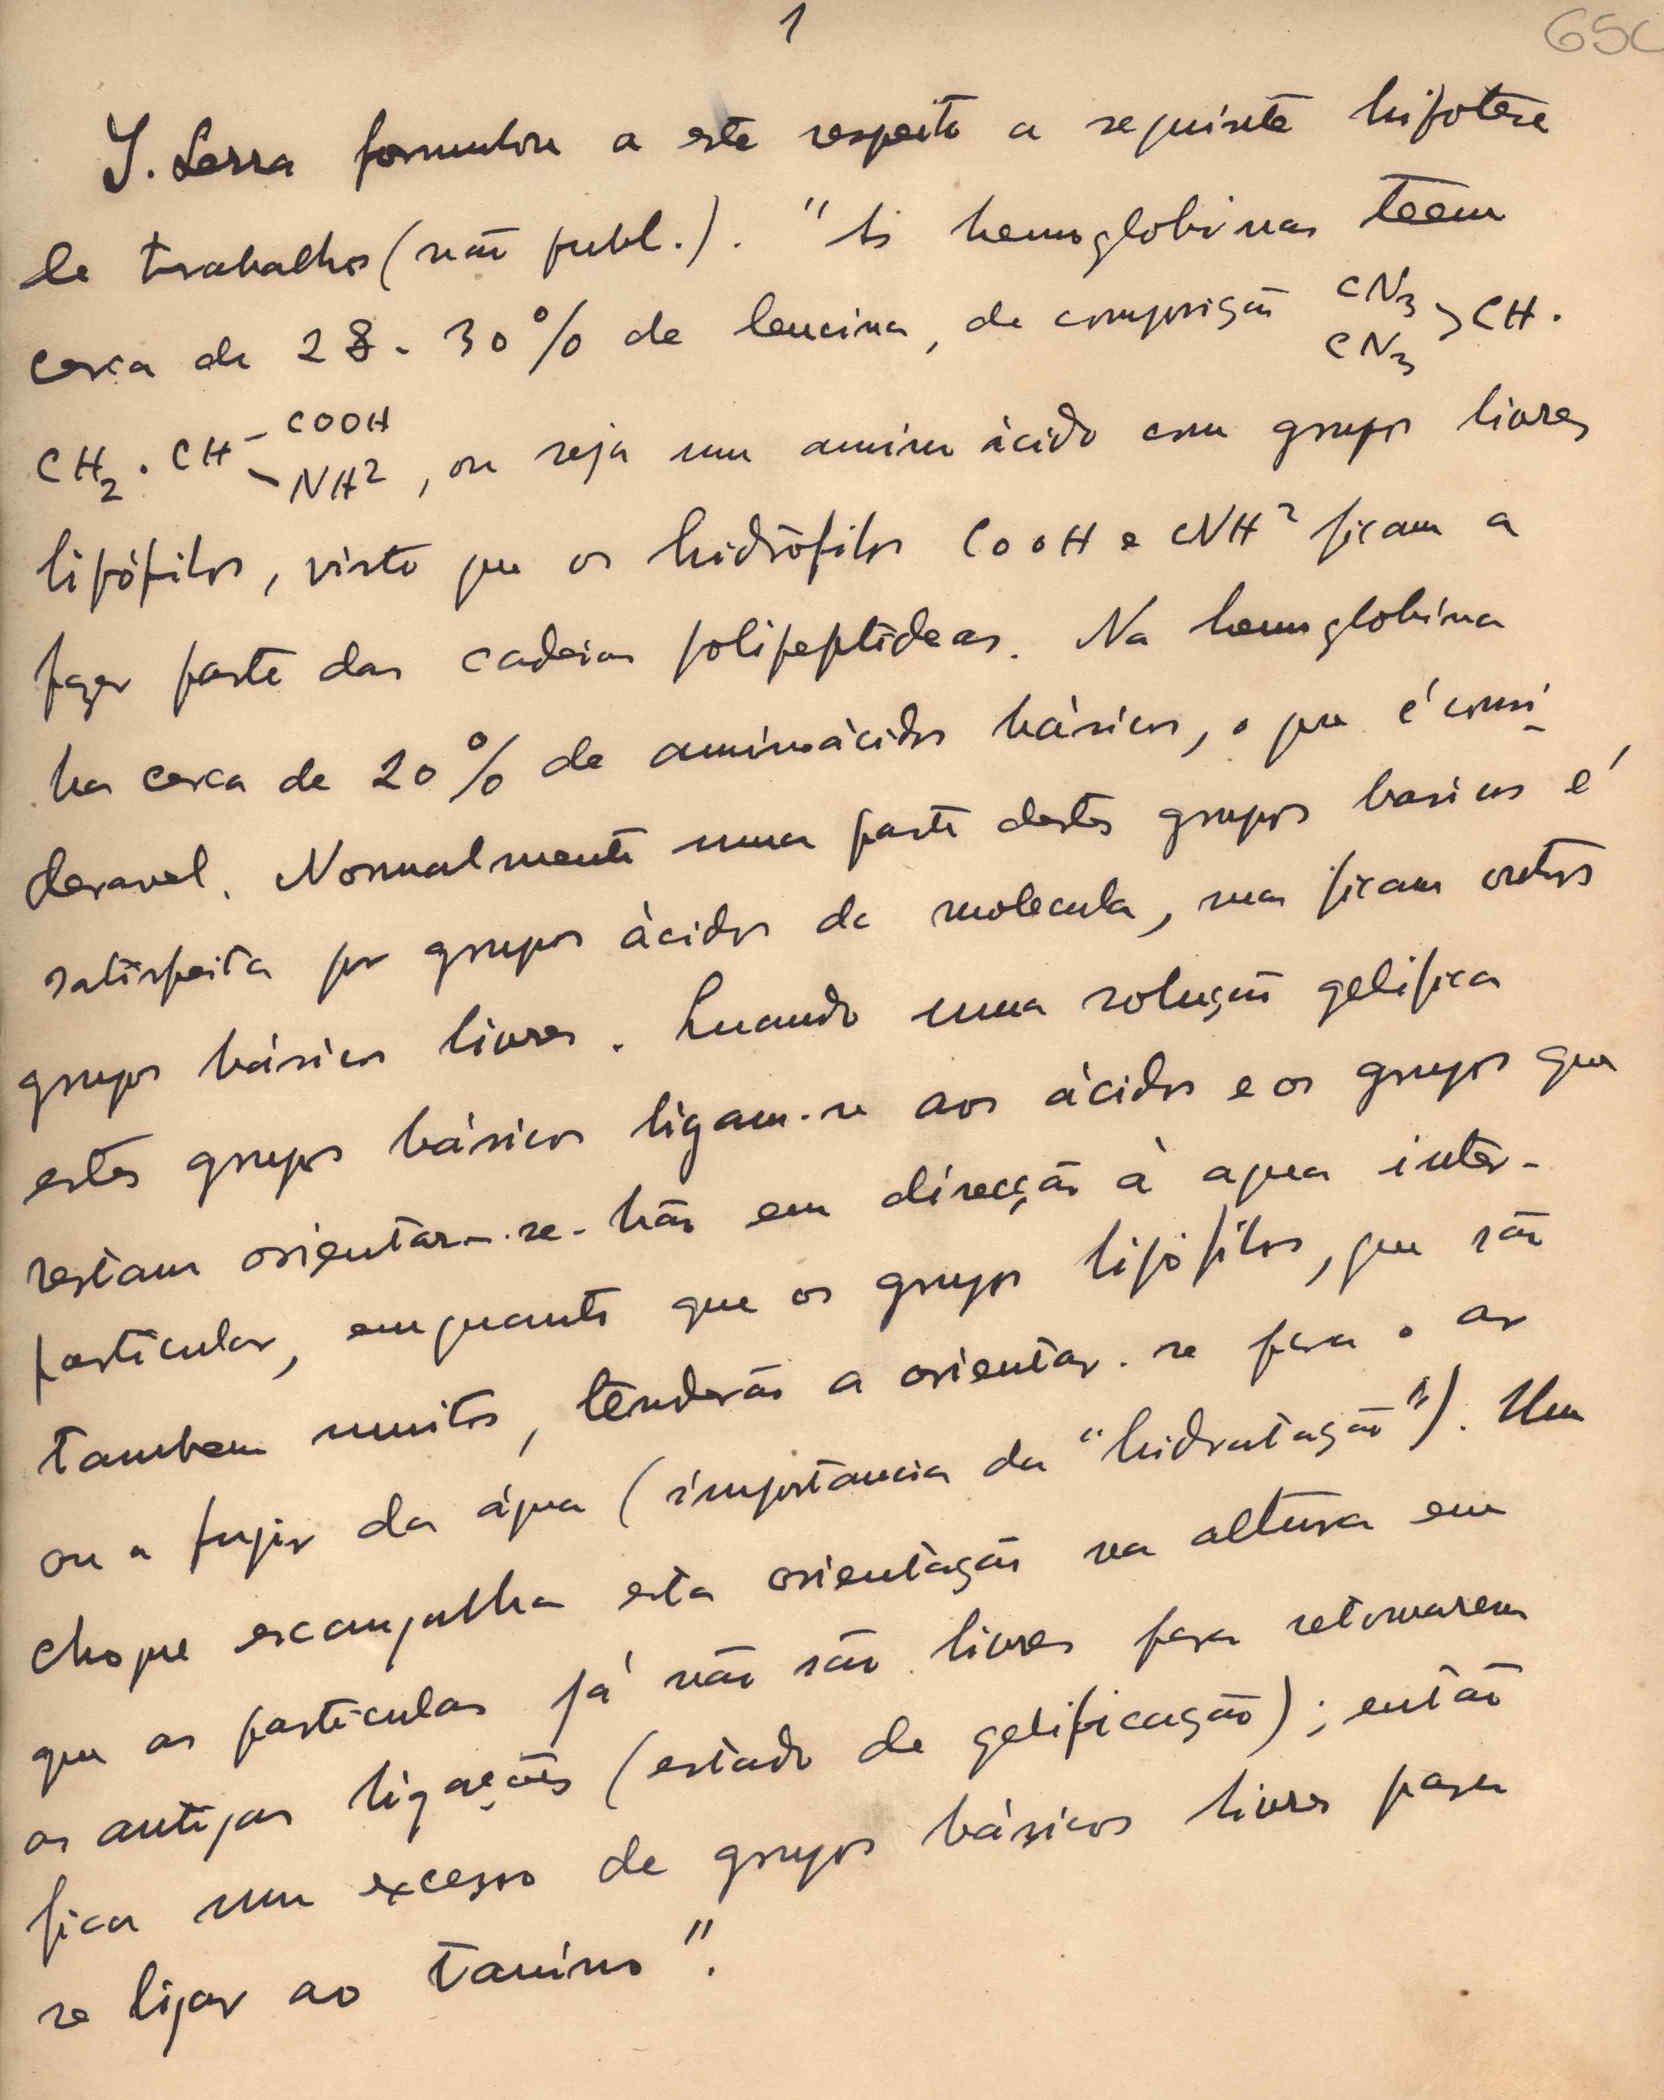 1
65C
J. Serra formulou a este respeito a seguinte hipotese
de trabalho (não publ.). "As hemoglobinas teem
cerca de 28-30% de leucina, de composição CN3 CN3 >CH.
CH2.CH - COOH - NH2, ou seja um amino ácido com grupos livres
lipófilos, visto que os hidrófilos COOH e CNH2 ficam a
fazer parte das cadeias polipeptídeas. Na hemoglobina
ha cerca de 20% de aminoácidos básicos, o que é consi-
deravel. Normalmente uma parte destes grupos basicos é
satisfeita por grupos ácidos da molecula, mas ficam outros
grupos básicos livres. Quando uma solução gelifica
estes grupos básicos ligam-se aos ácidos e os grupos que
restam orientar-se-hão em direcção à agua inter-
particular, emquanto que os grupos lipófilos, que são
tambem muitos, tenderão a orientar-se para o ar
ou a fugir da água (importancia da "hidratação"). Um
choque escangalha esta orientação na altura em
que as particulas já não são livres para retomarem
as antigas ligações (estado de gelificação); então
fica um excesso de grupos básicos livres para
se ligar ao tanino".